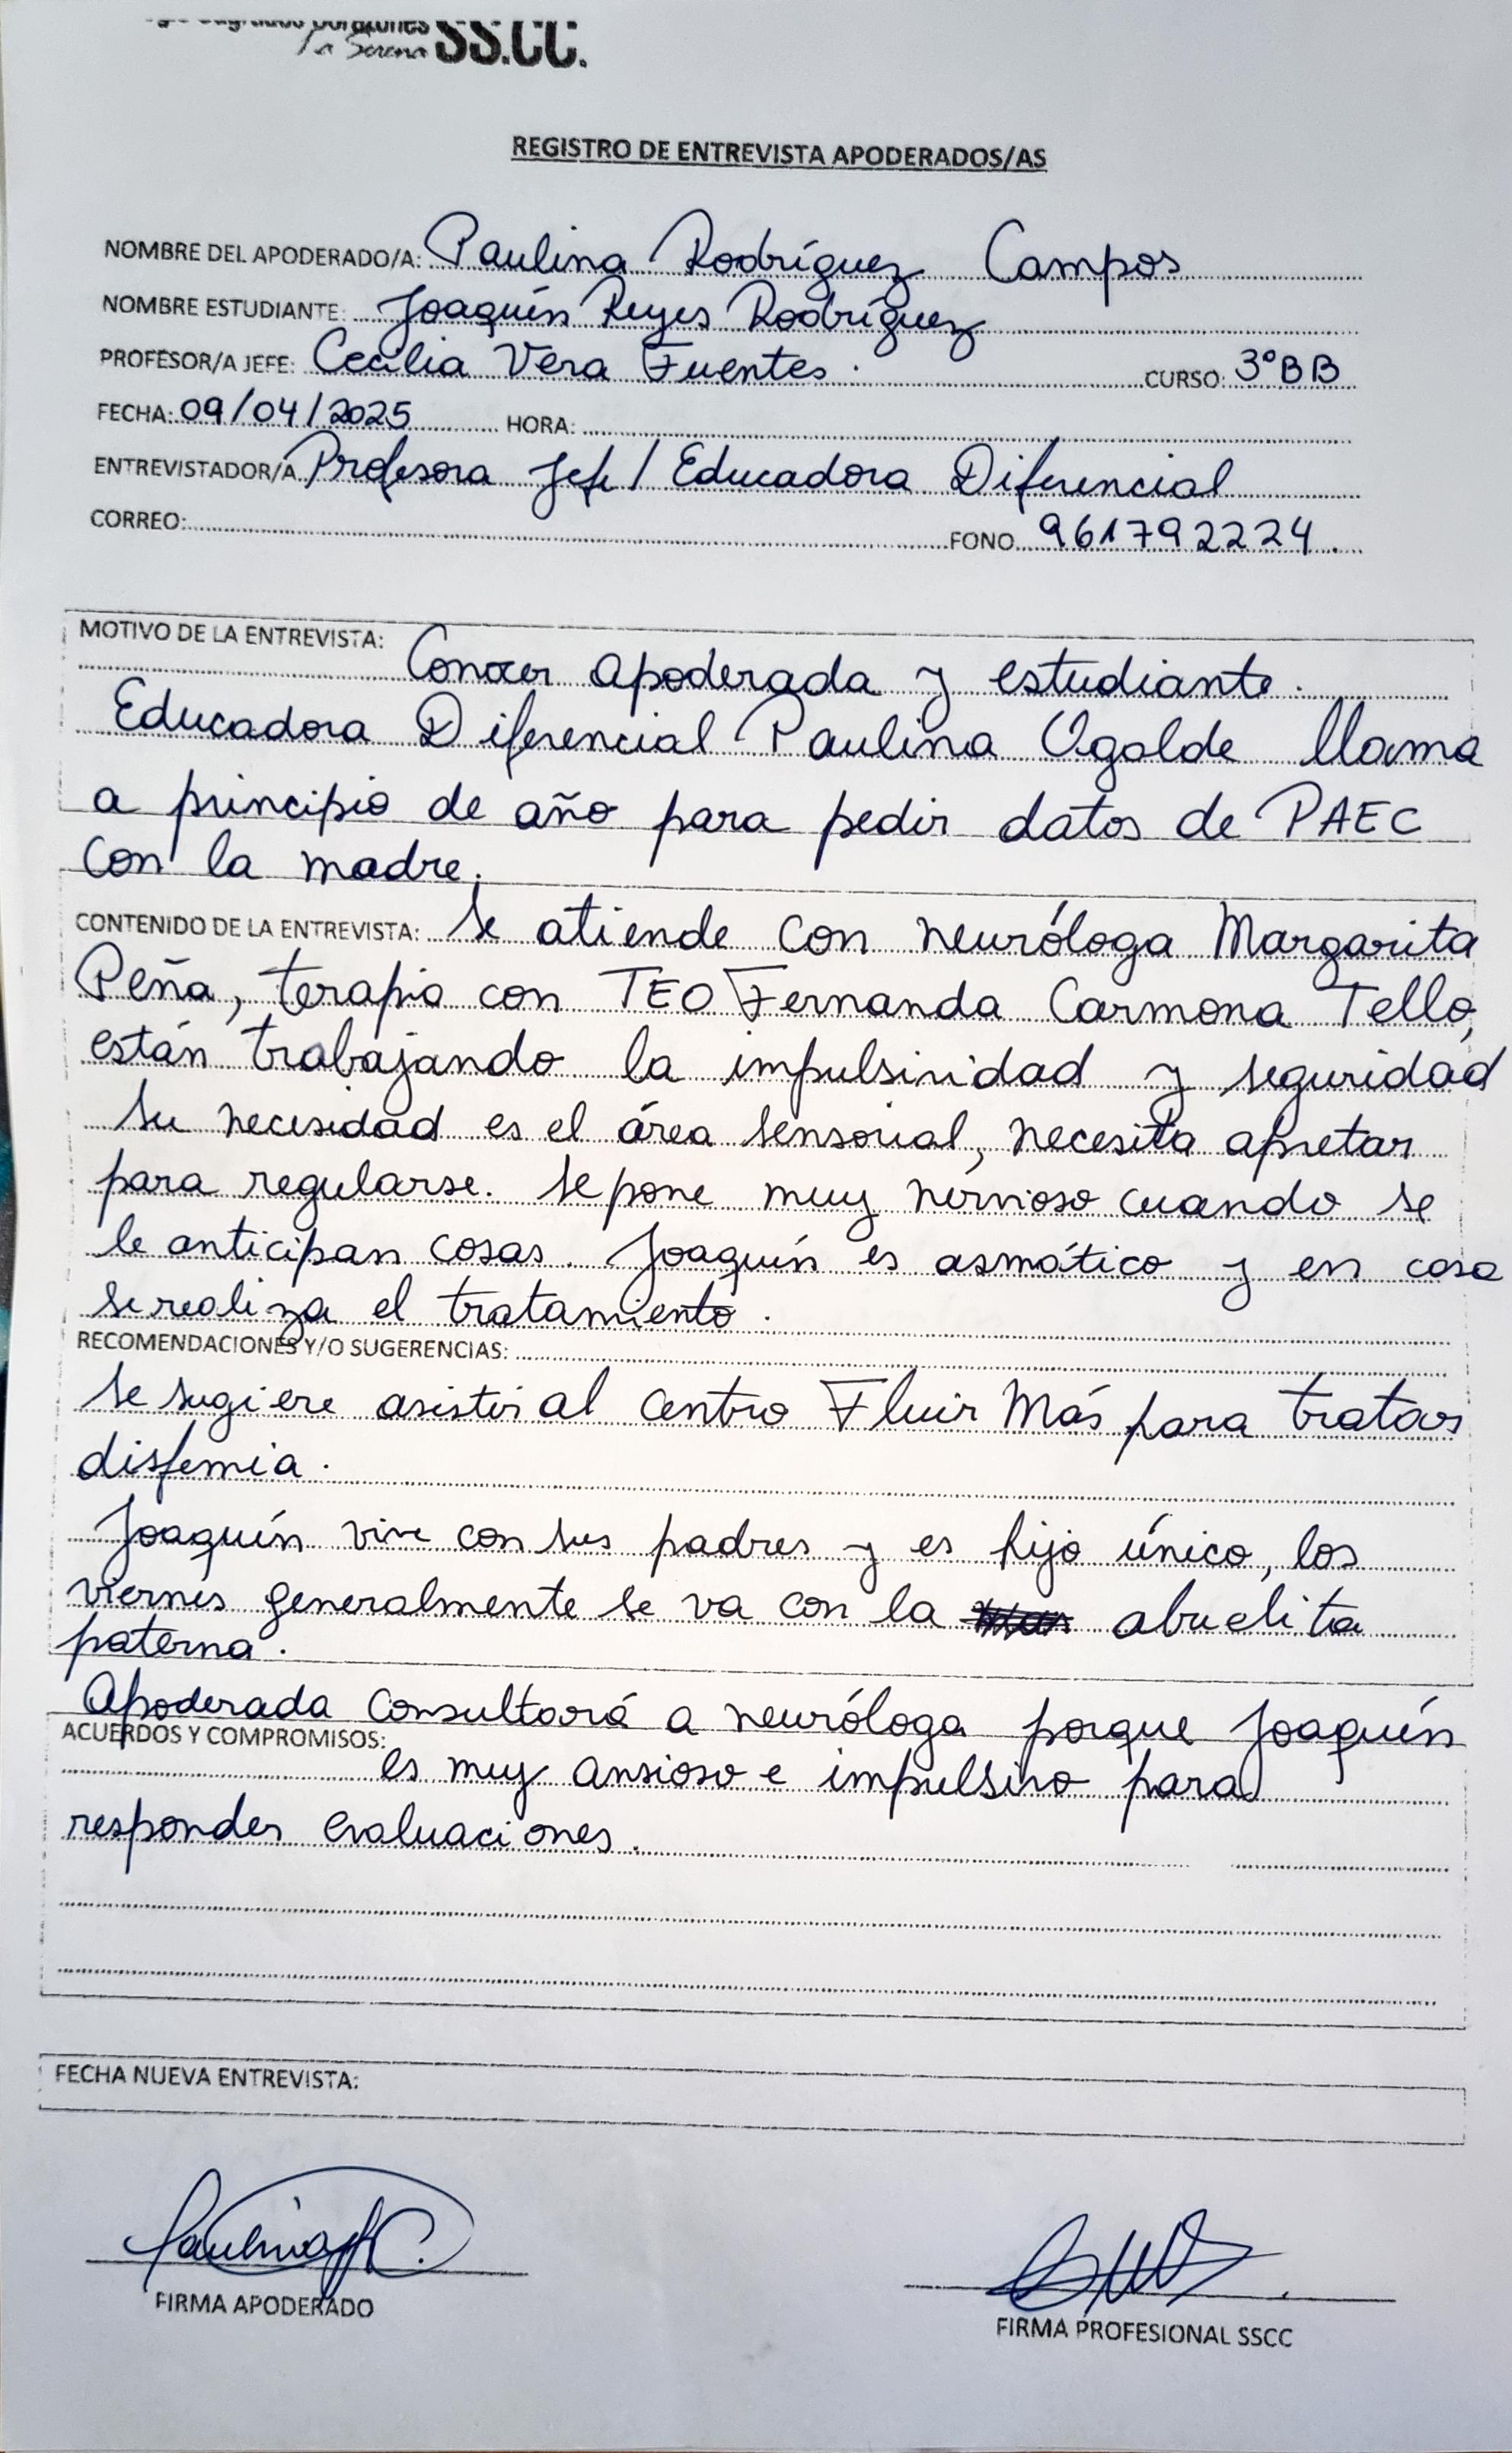 Sagrados Corazones
La Serena SS.CC.
REGISTRO DE ENTREVISTA APODERADOS/AS
NOMBRE DEL APODERADO/A: Paulina Rodríguez Campos
NOMBRE ESTUDIANTE: Joaquín Reyes Rodríguez
PROFESOR/A JEFE: Cecilia Vera Fuentes. CURSO: 3°BB
FECHA: 09/04/2025 HORA:
ENTREVISTADOR/A Profesora Jefe / Educadora Diferencial
CORREO: FONO 961792224.
MOTIVO DE LA ENTREVISTA: Conocer apoderada y estudiante.
Educadora Diferencial Paulina Ogalde llama
a principio de año para pedir datos de PAEC
con la madre.
CONTENIDO DE LA ENTREVISTA: Se atiende con neuróloga Margarita
Peña, terapia con TEO Fernanda Carmona Tello,
están trabajando la impulsividad y seguridad
Su necesidad es el área sensorial, necesita apretar
para regularse. Se pone muy nervioso cuando se
le anticipan cosas. Joaquín es asmático y en casa
se realiza el tratamiento.
RECOMENDACIONES Y/O SUGERENCIAS:
Se sugiere asistir al centro Fluir Más para tratar
disfemia.
Joaquín vive con sus padres y es hijo único, los
viernes generalmente se va con la abuelita
paterna.
Apoderada consultará a neuróloga porque Joaquín
ACUERDOS Y COMPROMISOS:
es muy ansioso e impulsivo para
responder evaluaciones.
FECHA NUEVA ENTREVISTA:
FIRMA APODERADO
FIRMA PROFESIONAL SSCC